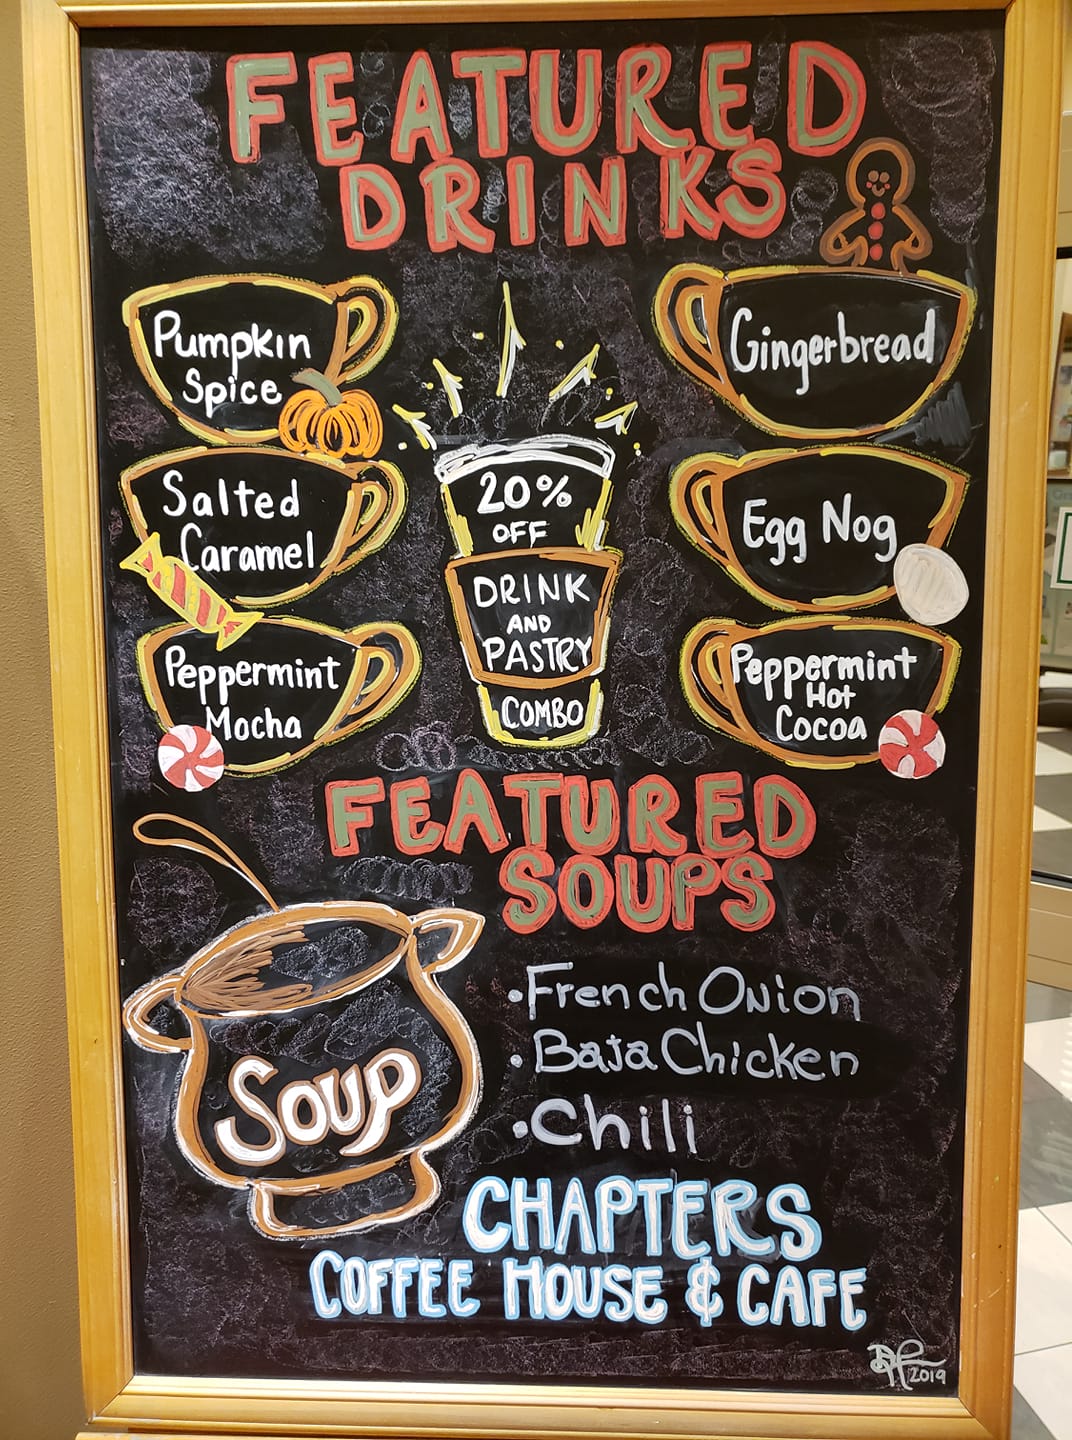 FEATURED
DRINKS
Pumpkin
Spice
Gingerbread
Salted
Caramel
20%
OFF
DRINK
AND
PASTRY
COMBO
Egg Nog
Peppermint
Mocha
Peppermint
Hot
Cocoa
FEATURED
SOUPS
SOUP
• French Onion
• Baja Chicken
• Chili
CHAPTERS
COFFEE HOUSE & CAFE
2019